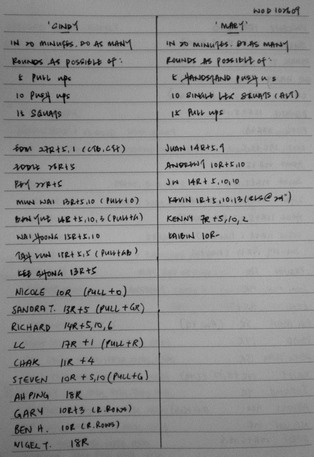 WOD 102809
'CINDY'
IN 20 MINUTES. DO AS MANY
ROUNDS AS POSSIBLE OF:
5 PULL UPS
10 PUSH UPS
15 SQUATS
27R+5,1
EDDIE 25R+5
22R+5
MUN WAI 13R+5,10
(PULL+G)
WAI HOONG 15R+5,10
KEE CHONG 13R+5
NICOLE 10R (PULL+O)
SANDRA T. 13R+5 (PULL+GR)
RICHARD 14R+5,10,6
LC 17R +1 (PULL+R)
CHAK 11R +4
STEVEN 10R +5,10 (PULL+G)
AH PING 18R
GARY 10R+3 (R.ROWS)
BEN H. 10R (R.ROWS)
NIGEL T. 18R
'MARY'
IN 20 MINUTES. DO AS MANY
ROUNDS AS POSSIBLE OF:
5 HANDSTAND PUSH UPS
10 SINGLE LEG SQUATS (ALT)
15 PULL UPS
JUAN 14R+5,9
ANDREW 10R+5,10
JW 14R+5,10,10
KEVIN 1R+5,10,13
KENNY 7R+5,10,2
KAIBIN 10R-